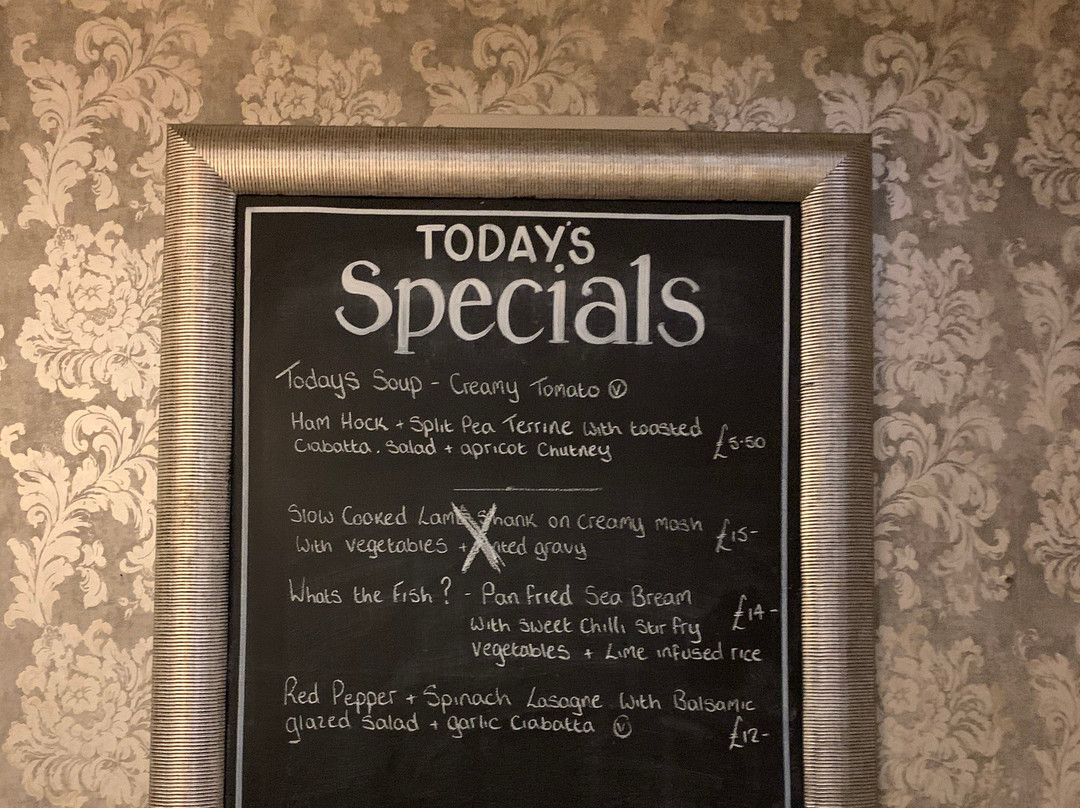 TODAY'S
Specials
Todays Soup - Creamy Tomato Ⓥ
Ham Hock + Split Pea Terrine with toasted
Ciabatta. Salad + apricot Chutney £5.50
Slow Cooked Lamb Shank on Creamy mash
With vegetables + minted gravy £15-
Whats the Fish? - Pan fried Sea Bream
With Sweet Chilli Stir fry £14-
vegetables + Lime infused rice
Red Pepper + Spinach Lasagne With Balsamic
glazed Salad + garlic Ciabatta Ⓥ £12-